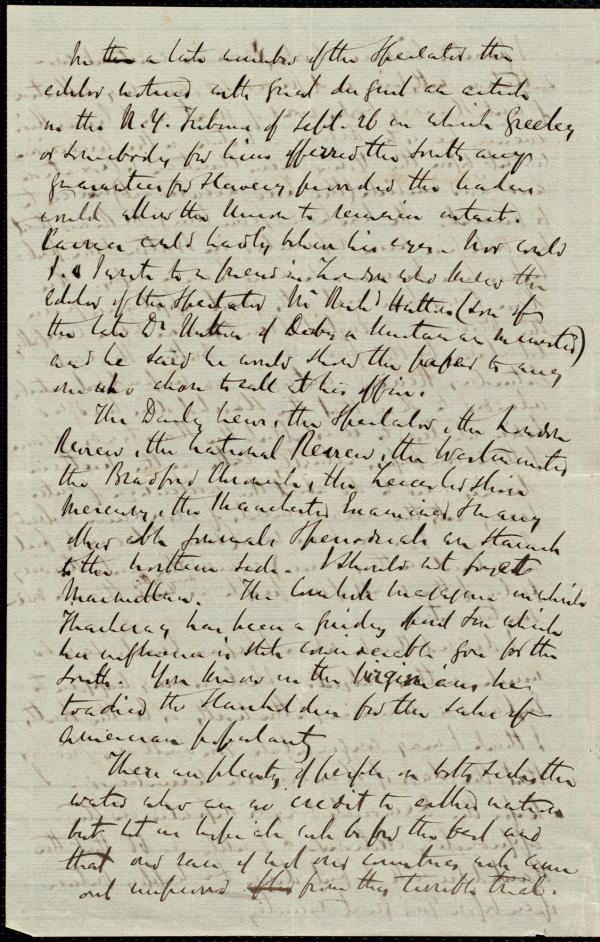 In the a late number of the Spectator the
editor noticed with great disgust an article
in the N.Y. Tribune of Sept. 26 in which Greeley
or somebody for him offered the South any
guarantees for Slavery, provided the leaders
would allow the Union to remain intact.
could hardly believe his eyes. Nor could
I. I wrote to a friend in London who knew the
editor of the Spectator Mr Richd Hutton (son of
the late Dr Hutton of Derby a Unitarian minister)
and he said he would show the paper to any
one who chose to call at his office.
The Daily News, the Spectator, the London
Review, the National Review, the Westminster
the Bradford Chronicle, the Leicestershire
Mercury, the Manchester Examiner & many
other able journals & periodicals are staunch
to the northern side. I should not forget
Macmillan. The Cornhill Magazine in which
Thackeray has been a guiding & on which
his influence is still considerable goes for the
South. You know in the Virginians he
toadied the Slaveholders for the sake of
American popularity
There are plenty of people on both sides the
water who are no credit to either nation
but let us hope all will be for the best and
that our race if not our countries will come
out improved from this terrible trial.